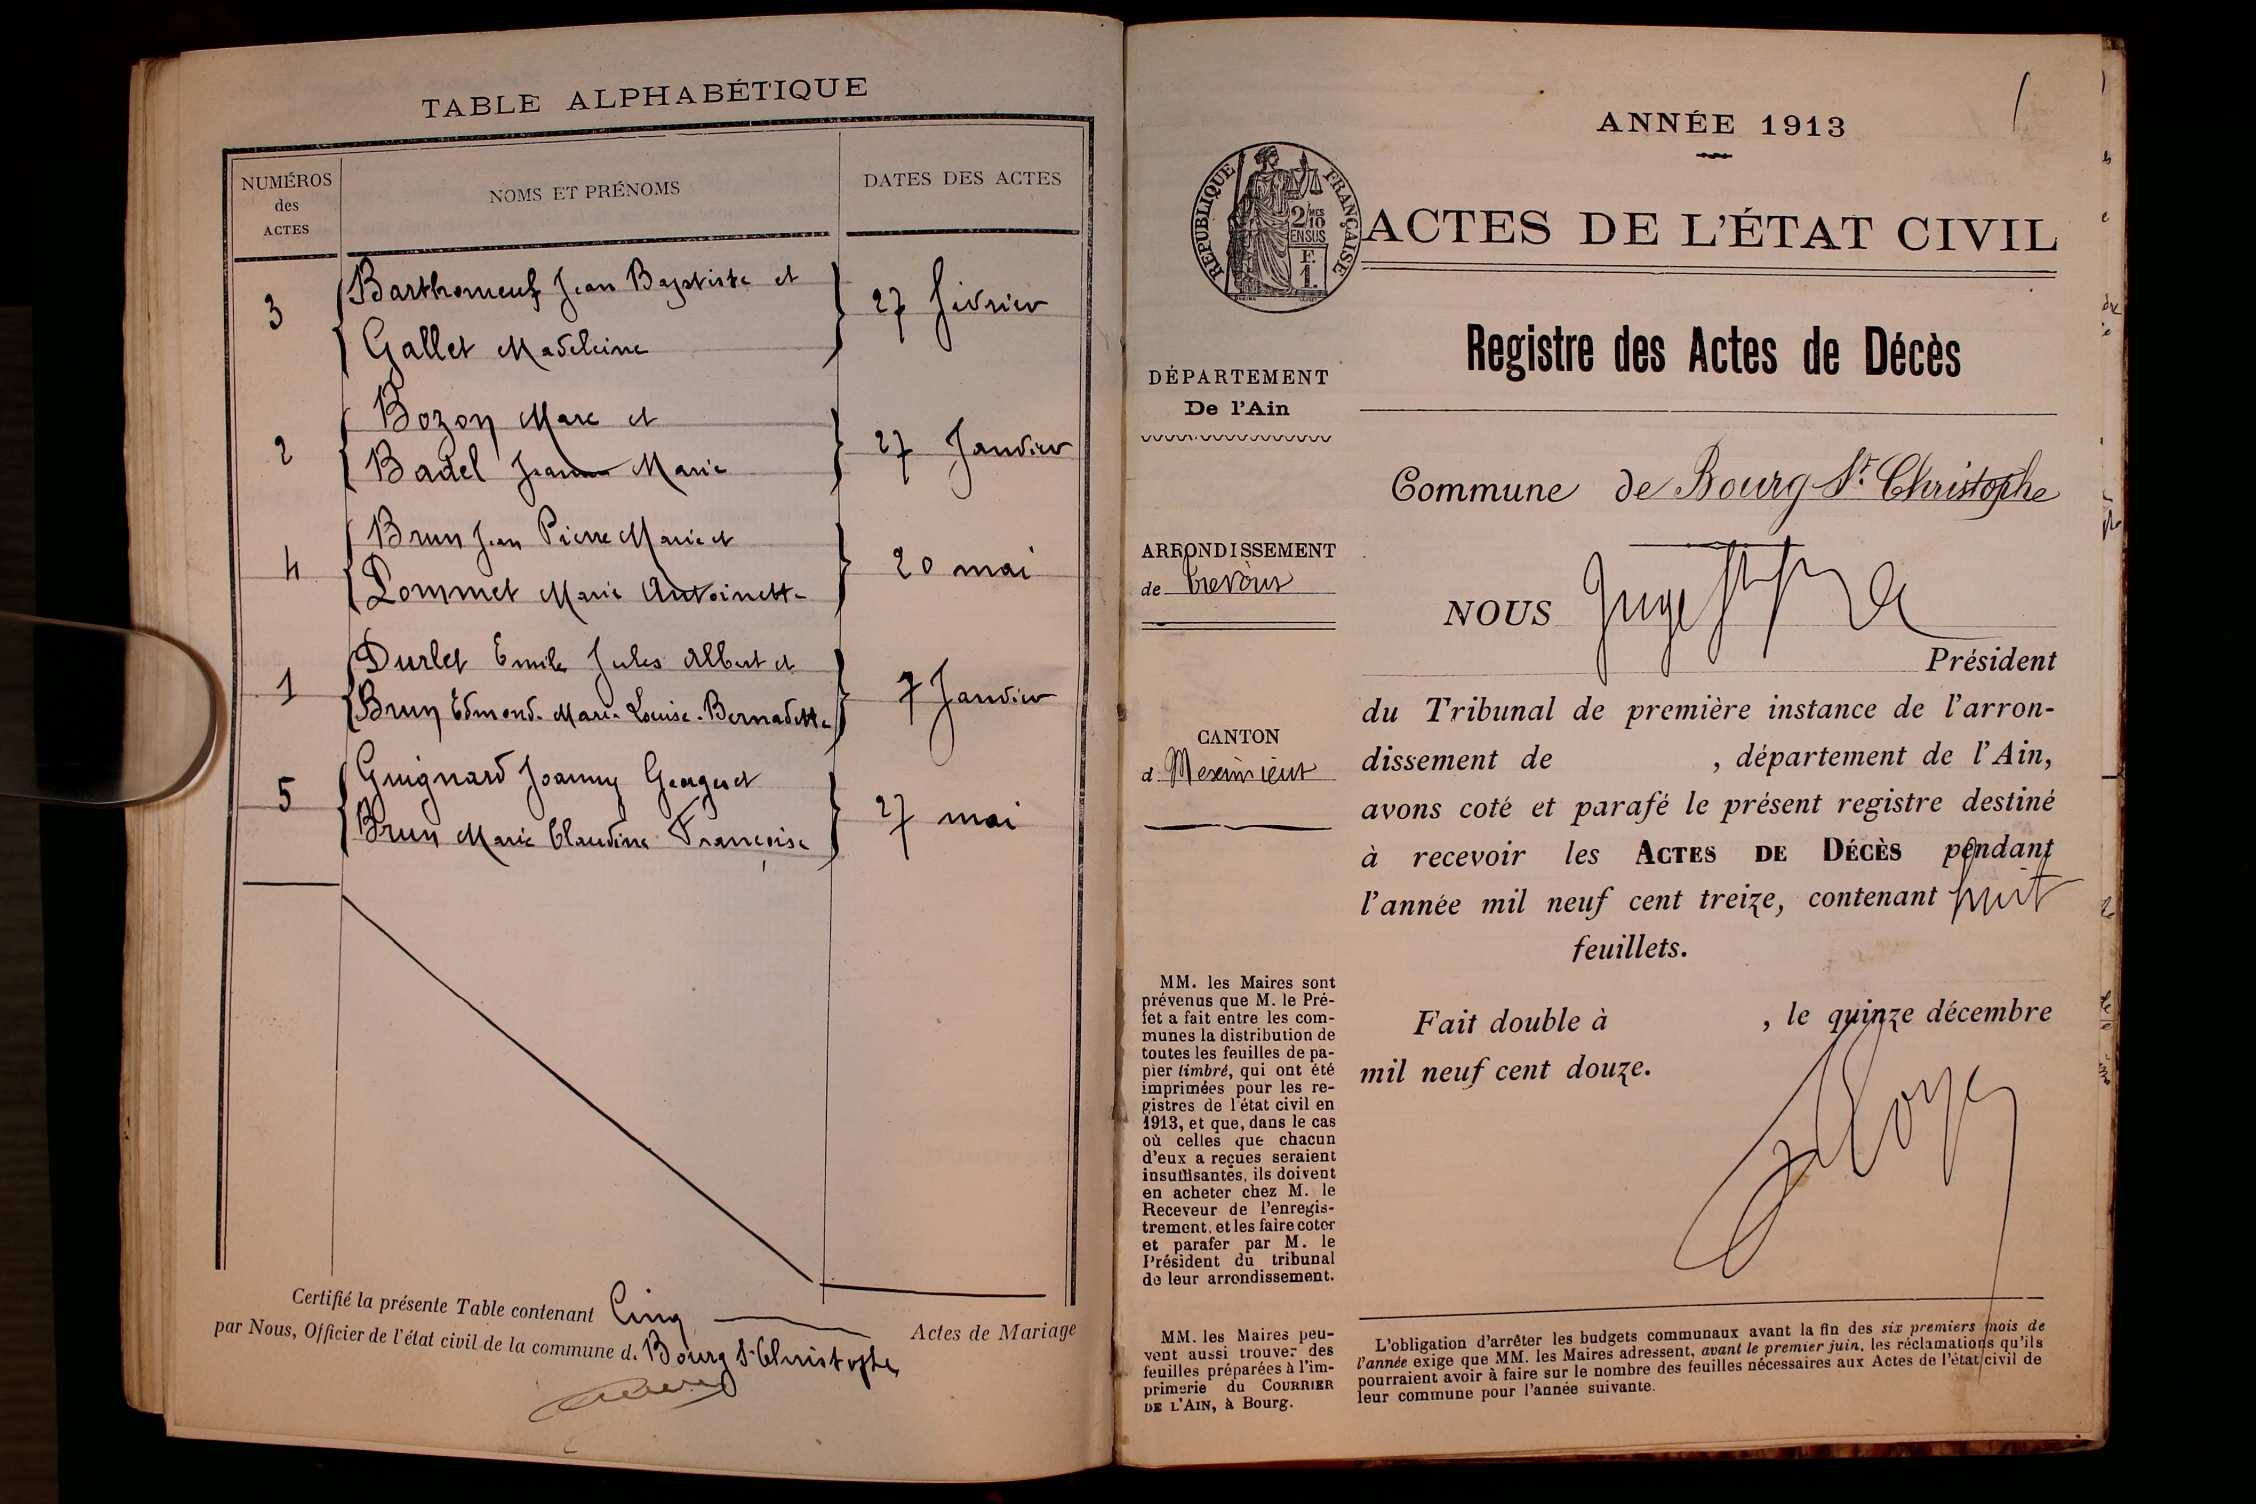 TABLE ALPHABÉTIQUE
NUMÉROS
des
ACTES
NOMS ET PRÉNOMS
DATES DES ACTES
3
Barthomeuf Jean Baptiste et
Gallet Madeleine
27 février
2
Bozon Marc et
Badel Jeanne Marie
27 Janvier
4
Brun Jean Pierre Marie et
Pommet Marie Antoinette
20 mai
1
Durlet Emile Jules Albert et
Brun Edmond. Marie. Louise. Bernadette
7 Janvier
5
Guignard Joanny Georges et
Brun Marie Claudine Françoise
27 mai
Certifié la présente Table contenant Cinq Actes de Mariage
par Nous, Officier de l'état civil de la commune d. Bourg St Christophe
ANNÉE 1913
RÉPUBLIQUE FRANÇAISE
2/10MES
EN SUS
F.
1.
ACTES DE L'ÉTAT CIVIL
Registre des Actes de Décès
DÉPARTEMENT
De l'Ain
Commune de Bourg St. Christophe
ARRONDISSEMENT
de Trevoux
NOUS
Président
du Tribunal de première instance de l'arron-
dissement de , département de l'Ain,
avons coté et parafé le présent registre destiné
à recevoir les ACTES DE DÉCÈS pendant
l'année mil neuf cent treize, contenant huit
feuillets.
Fait double à , le quinze décembre
mil neuf cent douze.
CANTON
d. Meximieux
MM. les Maires sont
prévenus que M. le Pré-
fet a fait entre les com-
munes la distribution de
toutes les feuilles de pa-
pier timbré, qui ont été
imprimées pour les re-
gistres de l'état civil en
1913, et que, dans le cas
où celles que chacun
d'eux a reçues seraient
insuffisantes, ils doivent
en acheter chez M. le
Receveur de l'enregis-
trement, et les faire coter
et parafer par M. le
Président du tribunal
de leur arrondissement.
MM. les Maires peu-
vent aussi trouver des
feuilles préparées à l'im-
primerie du COURRIER
DE L'AIN, à Bourg.
L'obligation d'arrêter les budgets communaux avant la fin des six premiers mois de
l'année exige que MM. les Maires adressent, avant le premier juin, les réclamations qu'ils
pourraient avoir à faire sur le nombre des feuilles nécessaires aux Actes de l'état civil de
leur commune pour l'année suivante.